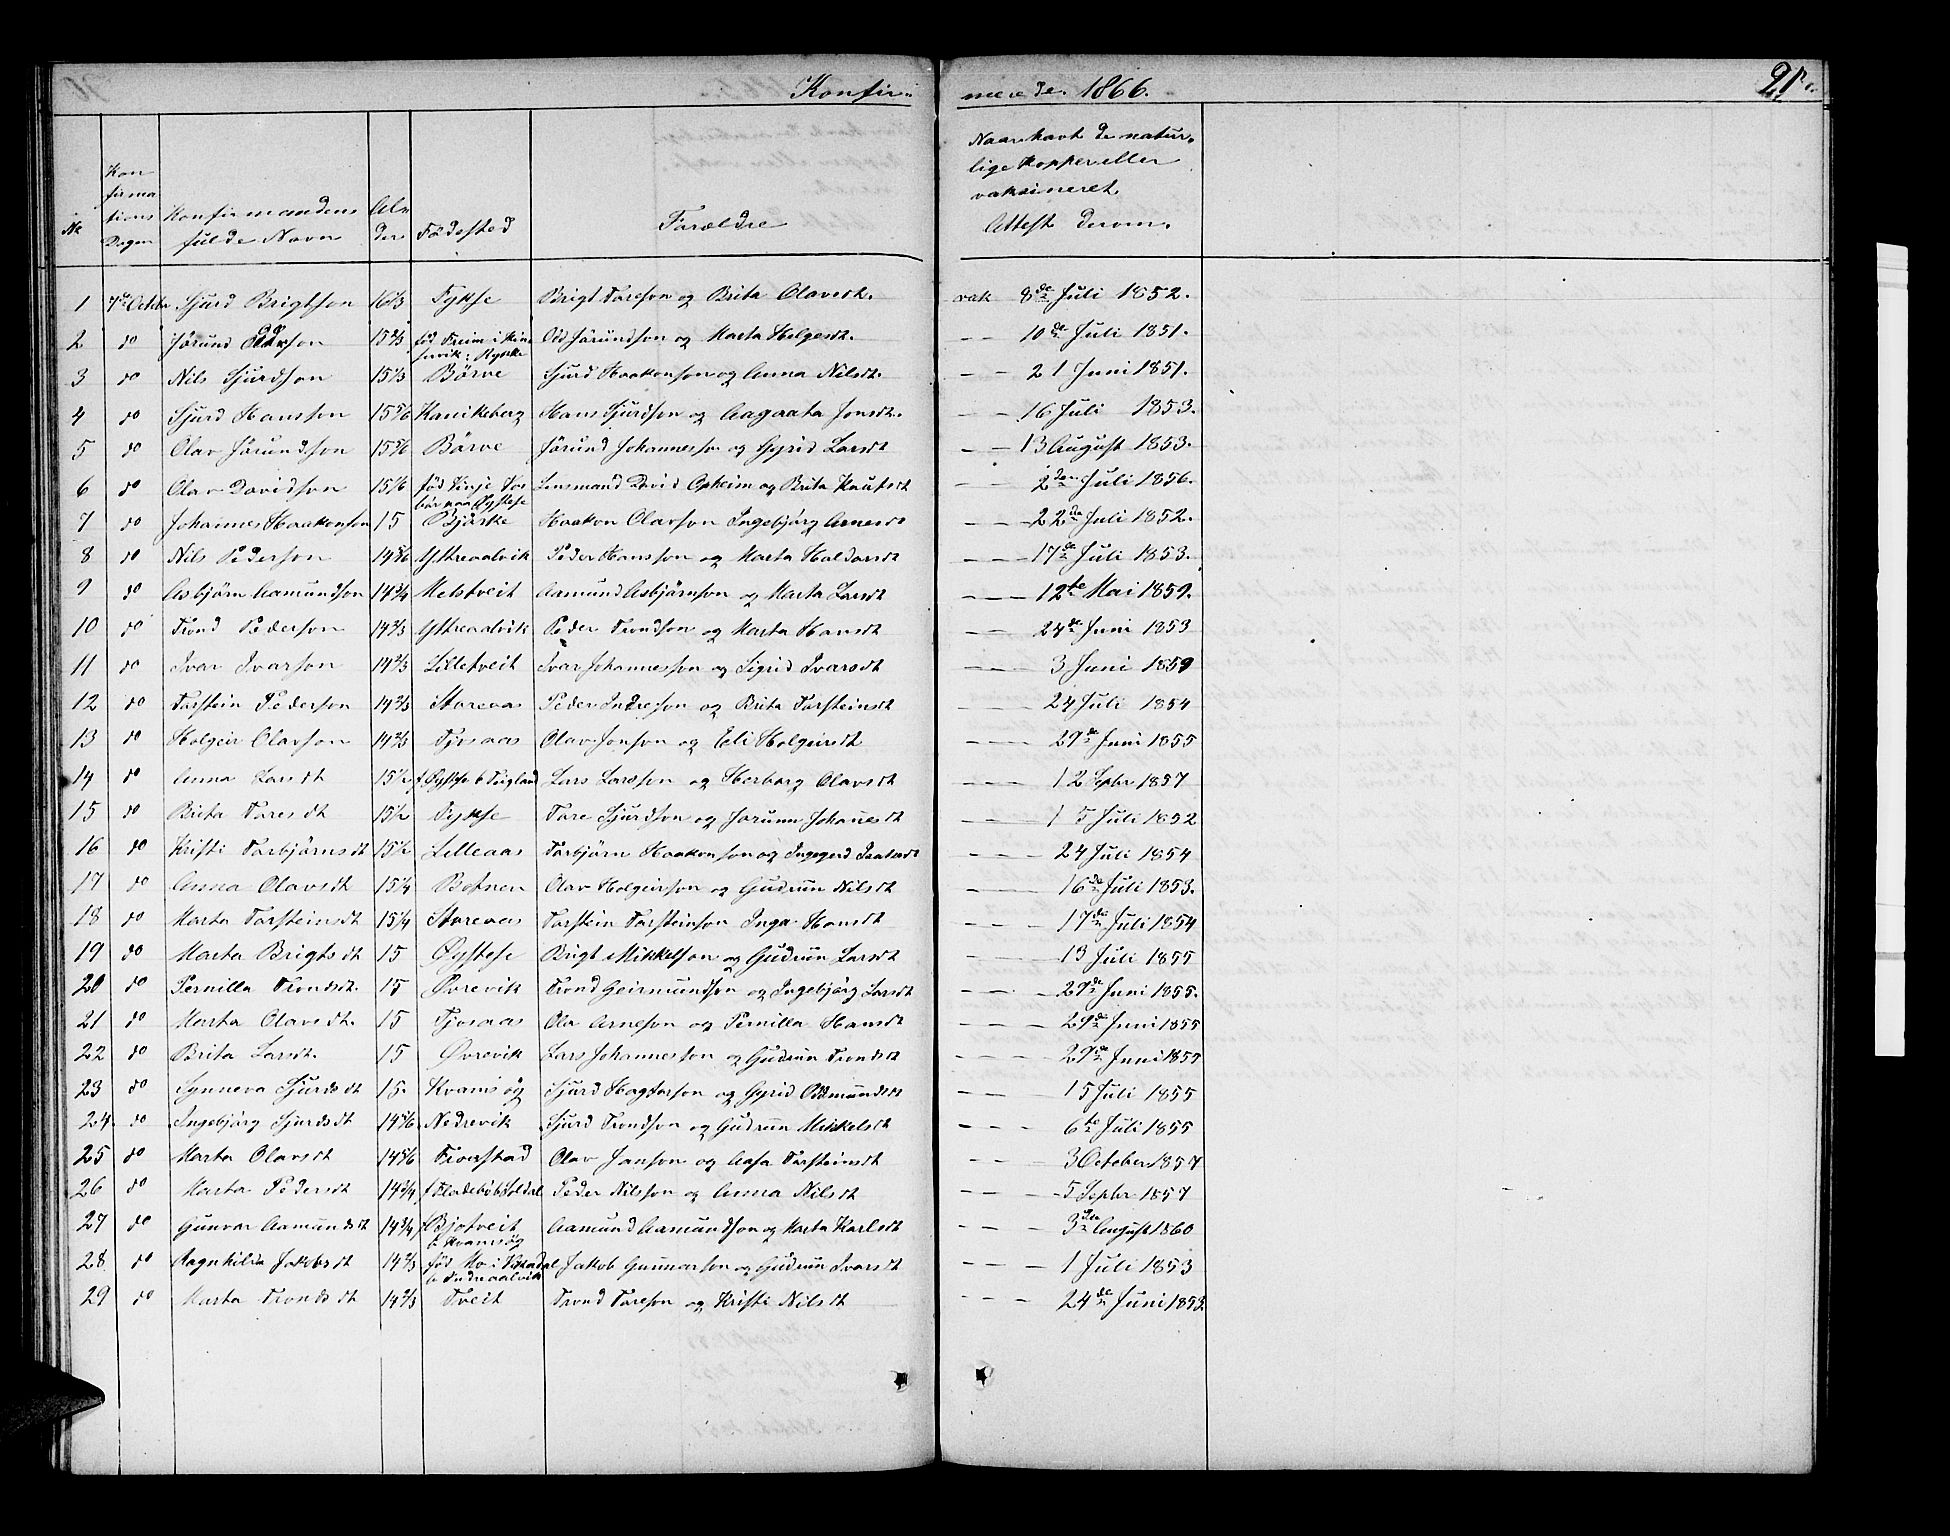 Konfir- merede. 1866. 91.
Nr
Kon firma tions Dagen
Konfirmandens fulde Navn
Al- der
Fødested
Forældre
Naar havt de natur- lige Kopper eller vaksineret. Attest derom.
1 7de Octbr Sjurd Brigtson 16 1/3 Fykse Brigt Toreson og Brita Olavsdt. vak 8de Juli 1852.
2 do Jørund Oddson 15 2/3 fød Freim i Kin- servik: Odd Jørundson og Marta Helgesdt. — — 10de Juli 1851.
3 do Nils Sjurdson 15 1/3 Børve Sjurd Haakonson og Anna Nilsdt. — — 21 Juni 1851.
4 do Sjurd Hansson 15 5/6 Kanikeberg Hans Sjurdson og Aagaata Jonsdt. — — 16 Juli 1853.
5 do Olav Jørundson 15 5/6 Børve Jørund Johannesson og Gyrid Larsdt — — 13 August 1853.
6 do Olav Davidson 15 1/6 fød Vinje Vos Øystese Lensmand David Opheim og Brita Knutsdt — — 2den Juli 1856.
7 do Johannes Haakonson 15 Bjørke Haakon Olavson Ingebjørg Arnesdt — — 22de Juli 1852.
8 do Nils Pederson 14 5/6 Ystreaalvik Peder Hansson og Marta Haldorsdt — — 17de Juli 1853.
9 do Asbjørn Aamundson 14 3/4 Melstveit Aamund Asbjørnson og Marta Larsdt — — 12te Mai 1859.
10 do Trond Pederson 14 2/3 Ystreaalvik Peder Trondson og Marta Hansdt — — 24de Juni 1853
11 do Ivar Ivarson 14 2/3 Lilletveit Ivar Johannesson og Sigrid Ivarsdt — — 3 Juni 1859
12 do Torstein Pederson 14 2/3 Storeaas Peder Indreson og Brita Torsteinsdt — — 24 Juli 1854
13 do Holgeir Olavson 14 2/3 Tjosaas Olav Jonson og Eli Holgeirsdt — — 29de Juni 1855
14 do Anna Larsdt 15 1/2 f Øystese b Teigland Lars Larsson og Herborg Olavsdt — — 12 Septbr 1857
15 do Brita Toresdt 15 1/2 Fykse Tore Sjurdson og Jorunn Johannesdt — — 15 Juli 1852
16 do Kristi Torbjørnsdt 15 1/2 Lilleaas Torbjørn Haakonson og Ingegerd — — 24 Juli 1854
17 do Anna Olavsdt 15 1/4 Botnen Olav Holgeirson og Gudrun Nilsdt — — 16de Juli 1853.
18 do Marta Torsteinsdt 15 1/4 Storeaas Torstein Torsteinson Inga Hansdt — — 17de Juli 1854
19 do Marta Brigtsdt 15 Øystese Brigt Mikkelson og Gudrun Larsdt — — 13 Juli 1855
20 do Pernilla Trondsdt. 15 Øvrevik Trond Geirmundson og Ingebjørg Larsdt — — 29de Juni 1855.
21 do Marta Olavsdt. 15 Tjosaas Ola Arneson og Pernilla Hansdt — — 29de Juni 1855
22 do Brita Larsdt. 15 Øvrevik Lars Johannesson og Gudrun Trondsdt — — 29de Juni 1859
23 do Synneva Sjurdsdt 15. Kvamsøy Sjurd Hagtorson og Gyrid Oddmundsdt — — 15 Juli 1855
24. do Ingebjørg Sjurdsdt 14 5/6 Nedrevik Sjurd Trondson og Gudrun Mikkelsdt — — 6te Juli 1855
25 do Marta Olavsdt 14 5/6 Tverstad Olav Janson og Aasa Torsteinsdt — — 3 October 1857
26 do Marta Pedersdt 14 3/4 f Fladebø b Soldal Peder Nilsson og Anna Nilsdt — — 5 Septbr 1857
27 do Gunvor Aamundsdt 14 3/4 f Bjotveit b Kvamsøy Aamund Aamundson og Marta Karlsdt — — 3die August 1860
28 do Ragnhilda Jakobsdt 14 2/3 fød Mo i b Indreaalvik Jakob Gunnarson og Gudrun Ivarsdt — — 1 Juli 1853
29 do Marta Trondsdt 14 2/3 Tveit Trond Toreson og Kristi Nilsdt — — 24de Juni 1853